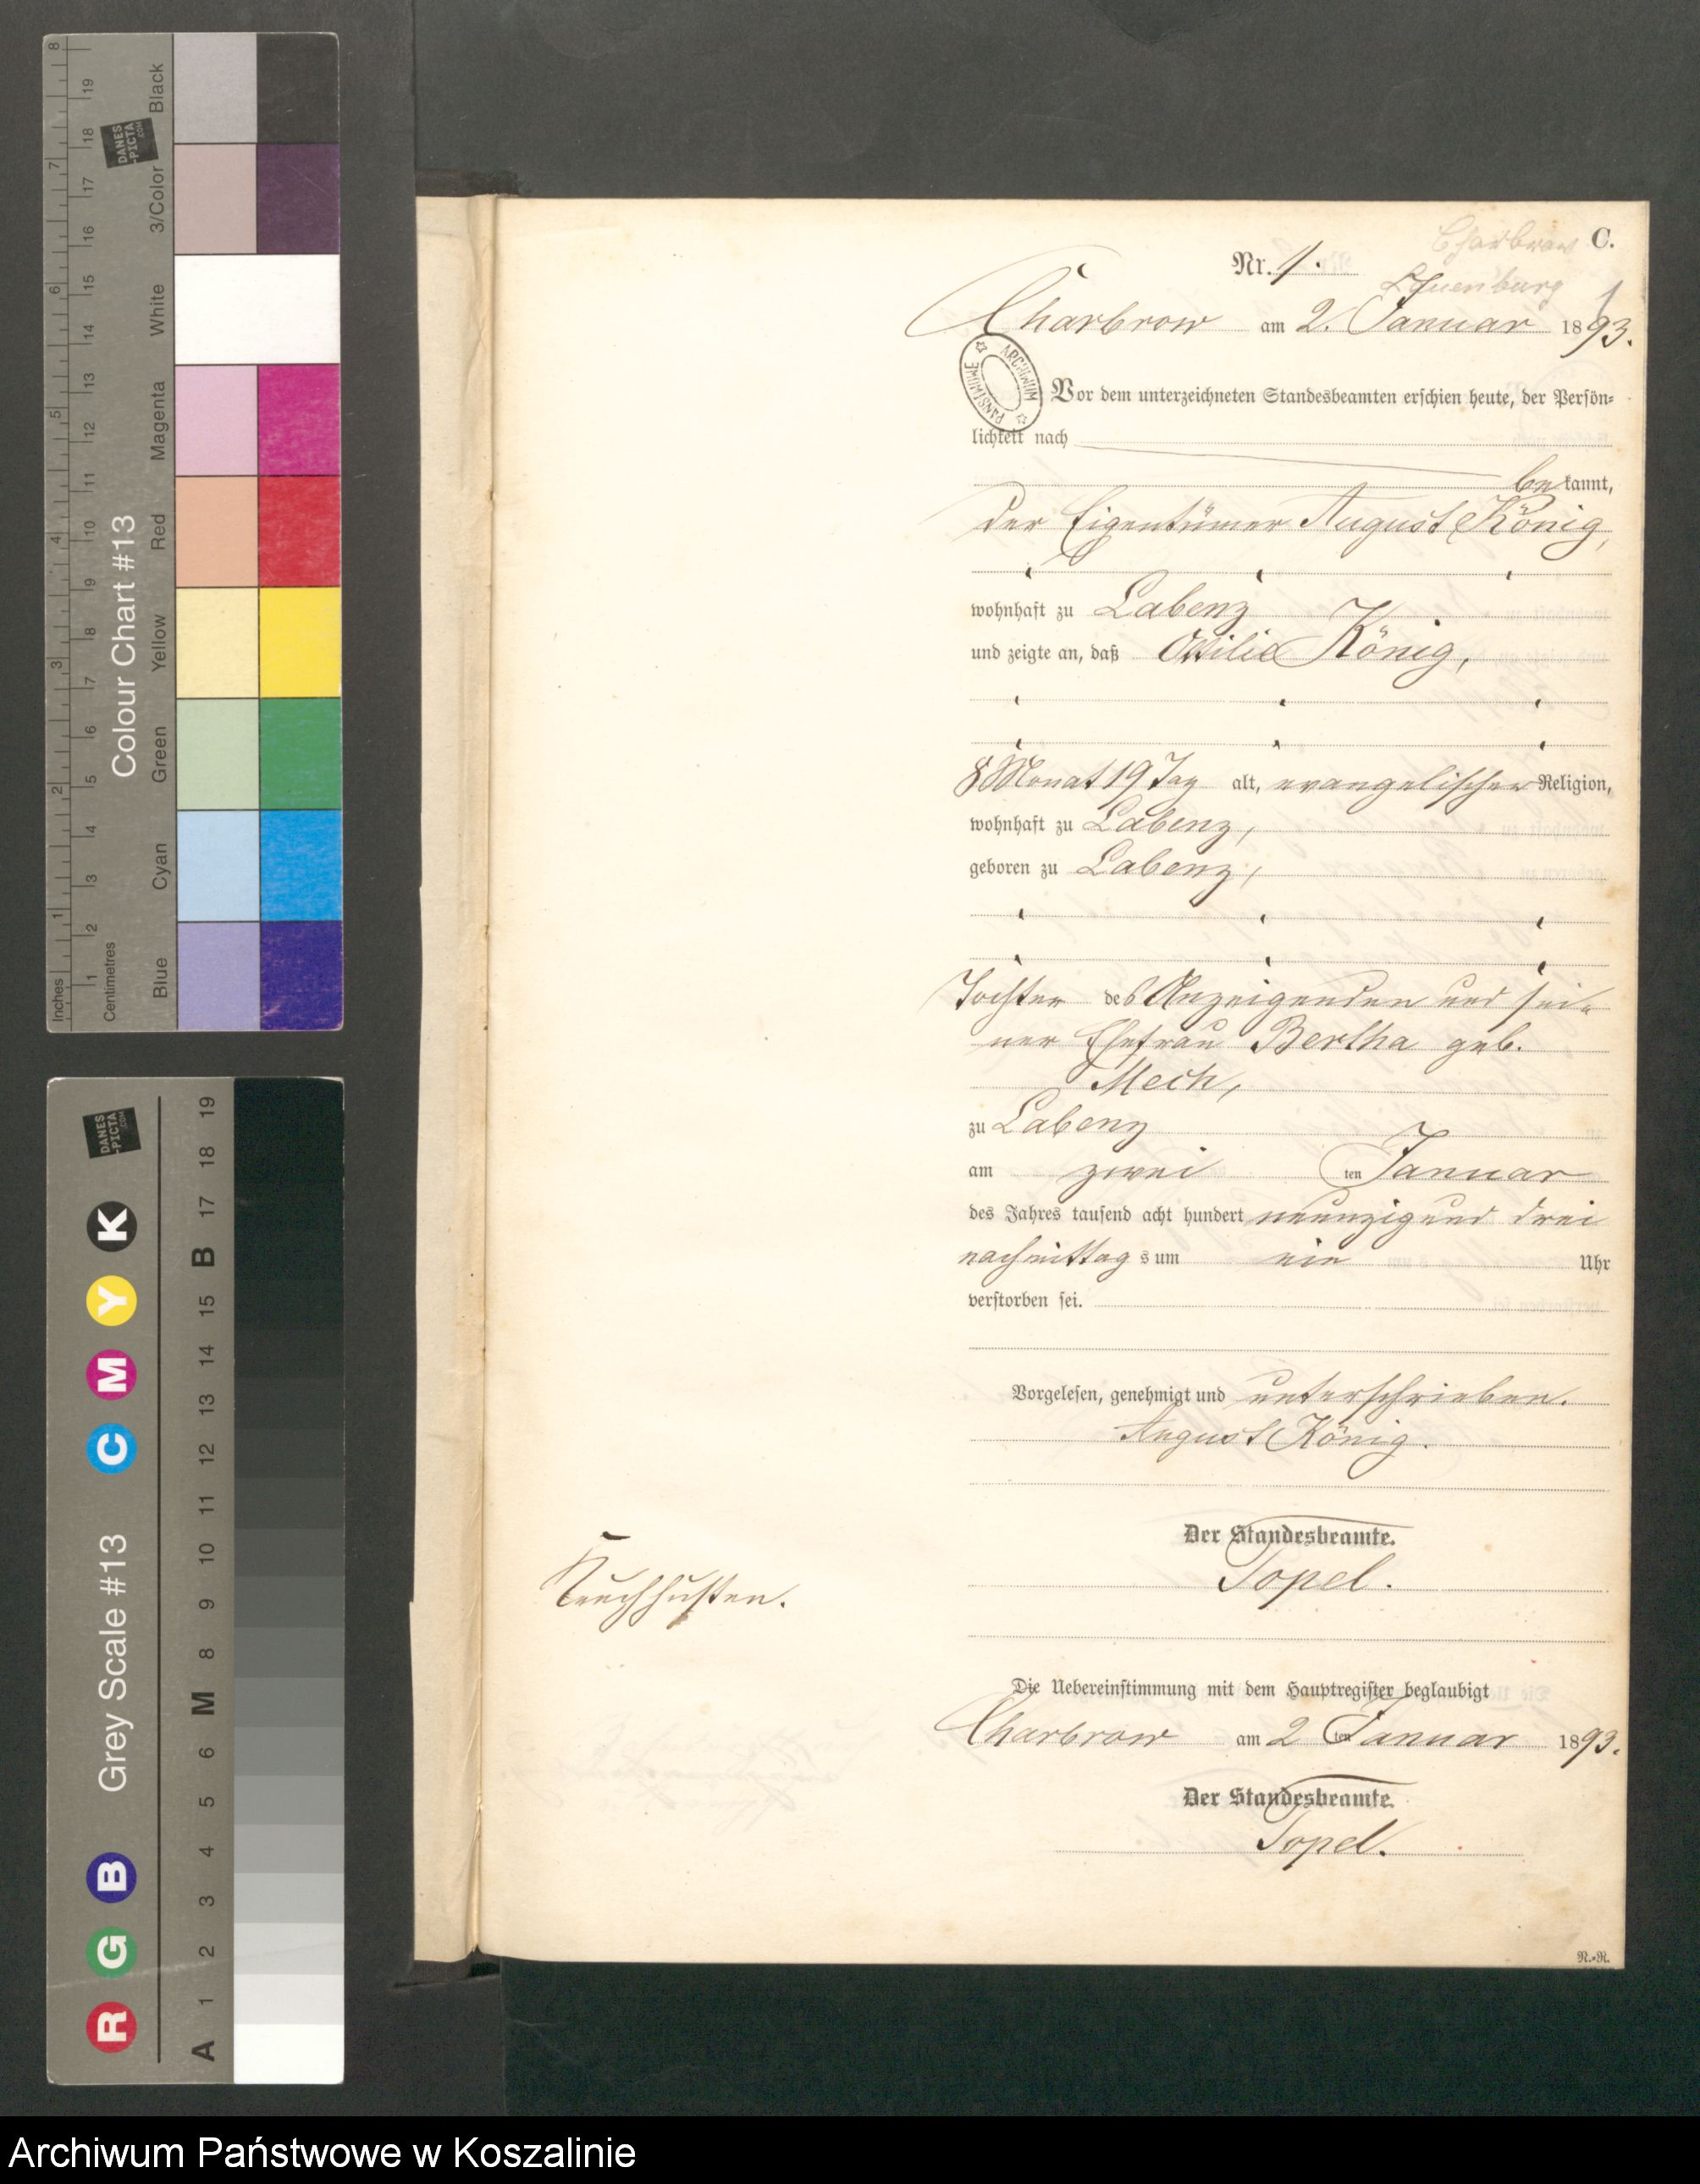 8
19
18
7
17
16
6
15
14
13
5
12
11
4
10
9
8
3
7
6
2
5
4
3
1
2
1
Inches
Centimetres
Colour Chart #13
Black
3/Color
White
Magenta
Red
Yellow
Green
Cyan
Blue
DANES
-PICTA
.COM
DANES
-PICTA
.COM
Grey Scale #13
R G B C M Y K
A 1 2 3 4 5 6 M 8 9 10 11 12 13 14 15 B 17 18 19
Charbrow C.
Nr. 1.
Lauenburg 1
Charbrow am 2. Januar 1893.
ARCHIWUM PAŃSTWOWE
Vor dem unterzeichneten Standesbeamten erschien heute, der Persön-
lichkeit nach
bekannt,
der Eigentümer August König,
wohnhaft zu Labenz
und zeigte an, daß Ottilie König,
8 Monat 19 Tag alt, evangelischer Religion,
wohnhaft zu Labenz,
geboren zu Labenz,
Tochter des Anzeigenden und sei-
ner Ehefrau Bertha geb.
Mech,
zu Labenz
am zwei ten Januar
des Jahres tausend acht hundert neunzig und drei
nachmittags um ein Uhr
verstorben sei.
Vorgelesen, genehmigt und unterschrieben.
August König.
Der Standesbeamte.
Topel.
Keuchhusten.
Die Uebereinstimmung mit dem Hauptregister beglaubigt
Charbrow am 2 ten Januar 1893.
Der Standesbeamte.
Topel.
N.-R.
Archiwum Państwowe w Koszalinie